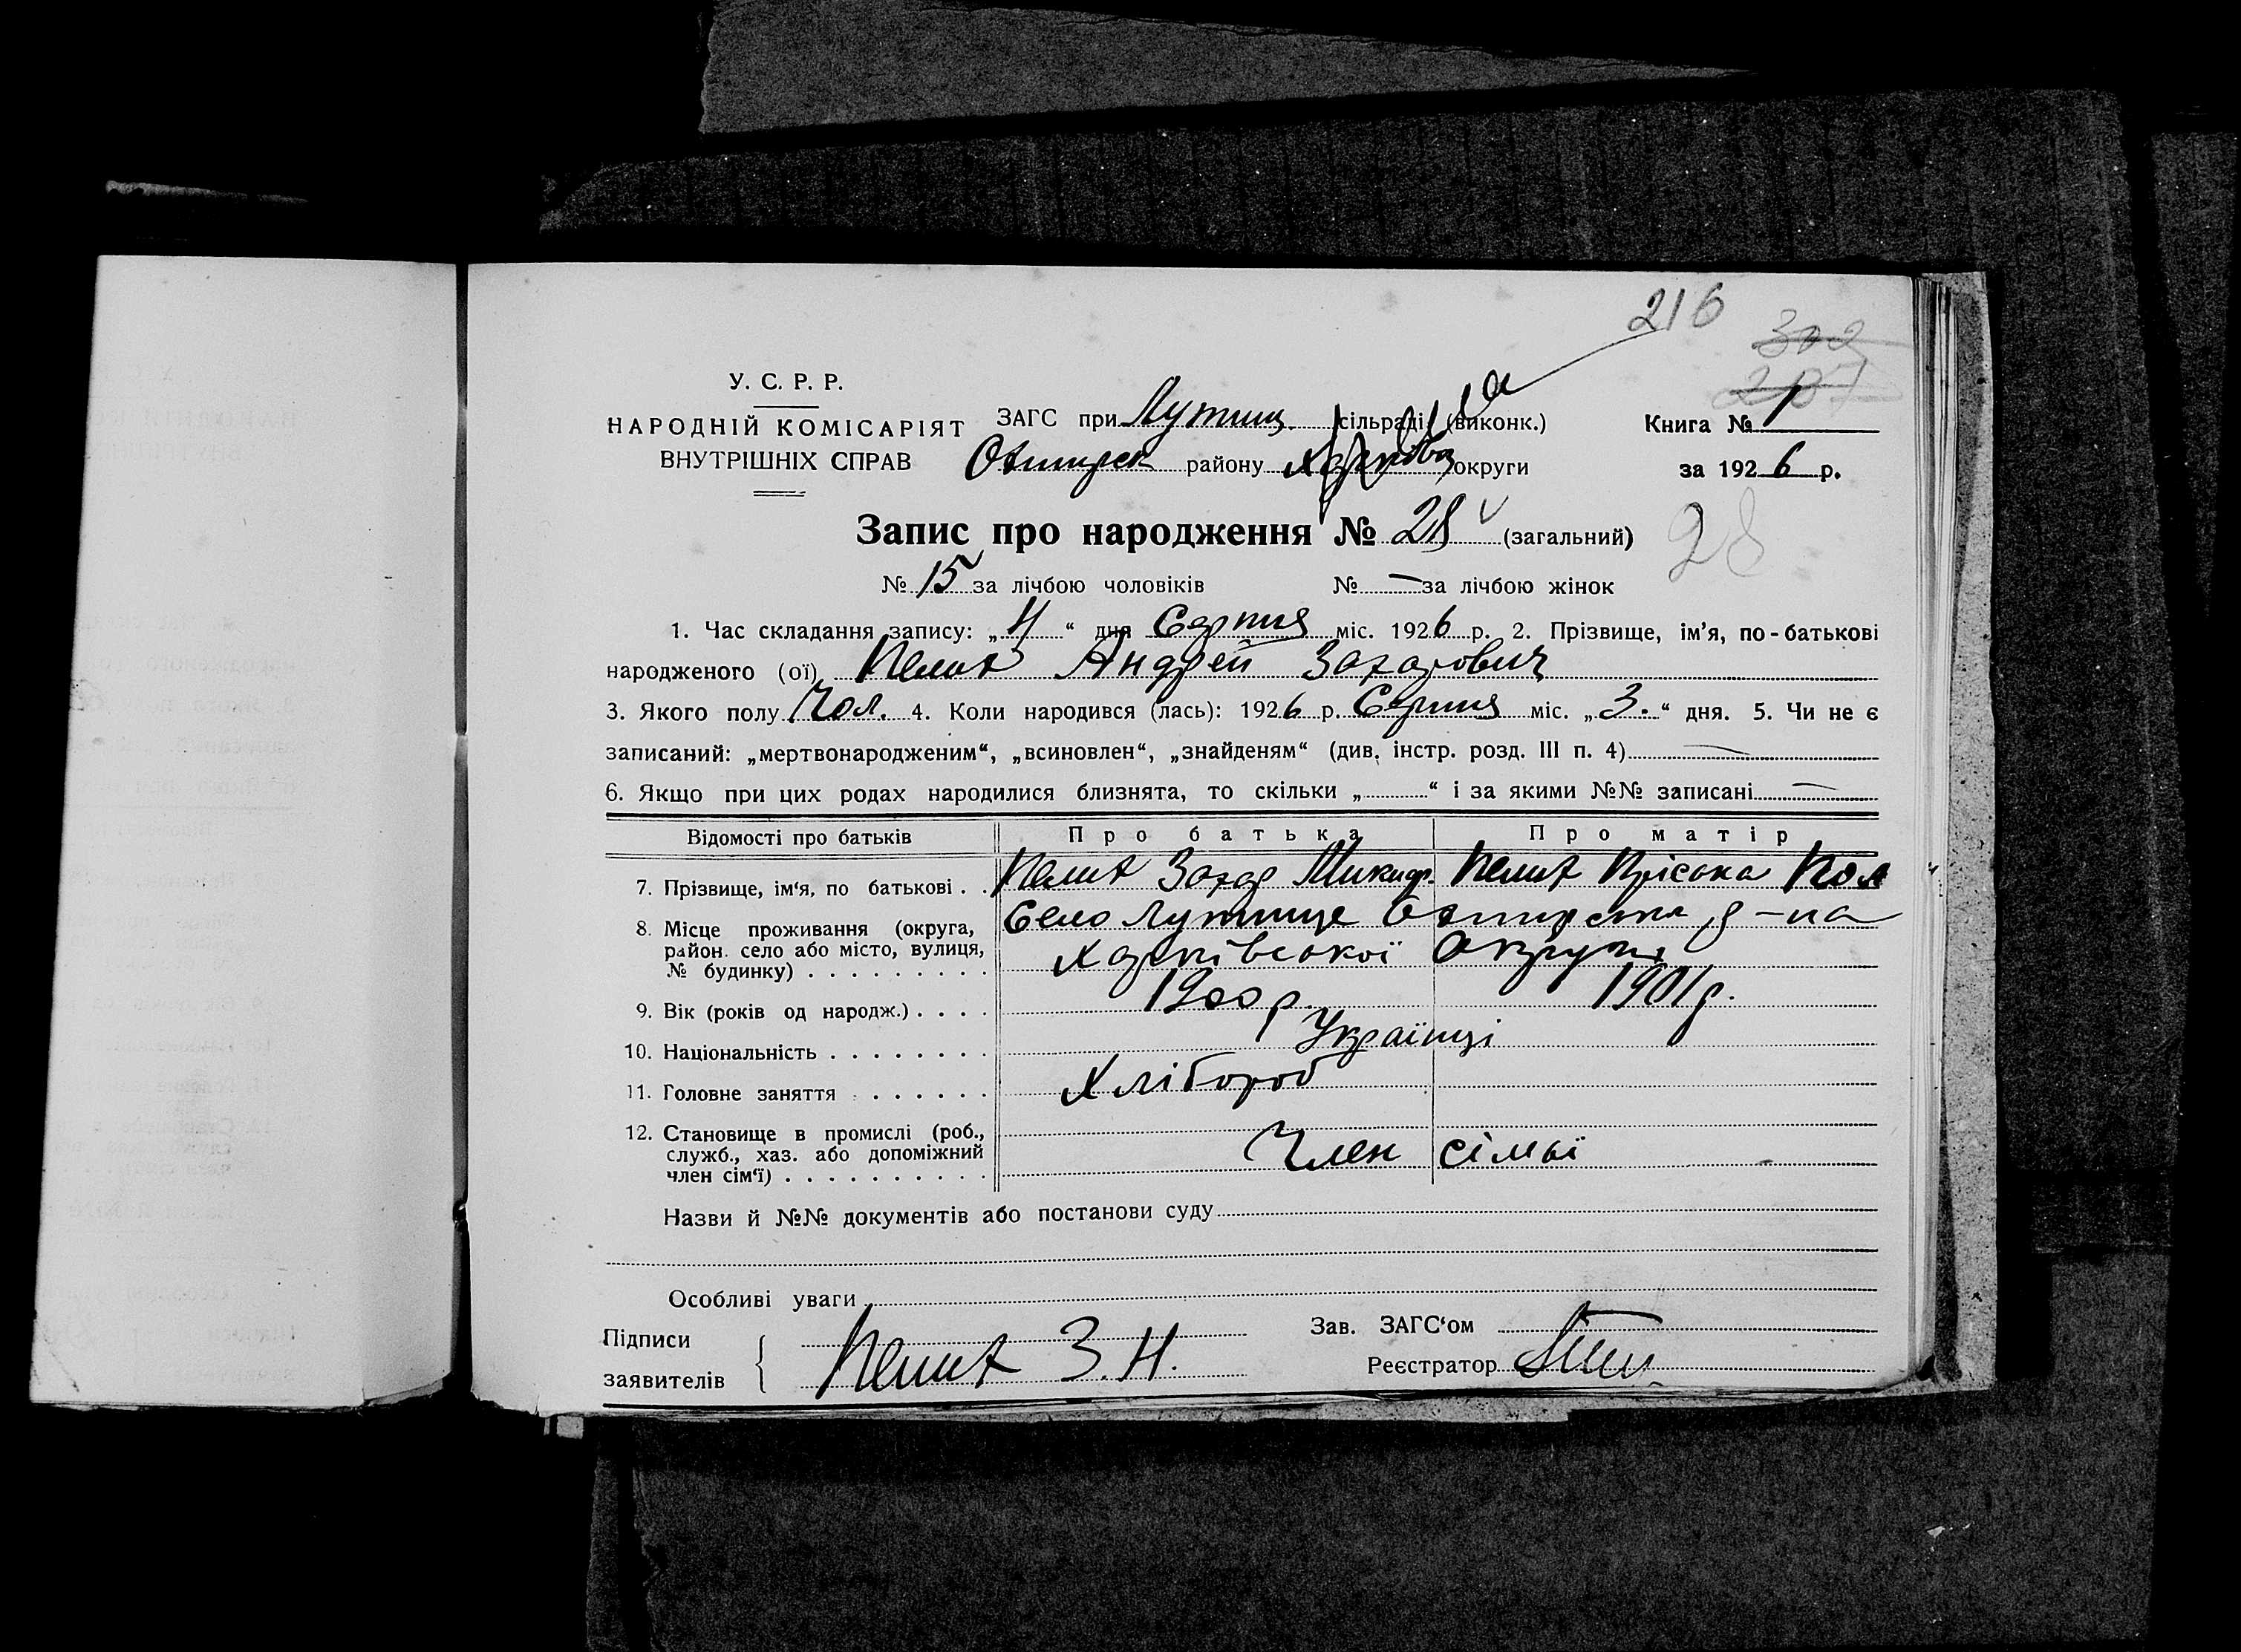 216
302
207
У. С. Р. Р.
НАРОДНІЙ КОМІСАРІЯТ
ВНУТРІШНІХ СПРАВ
ЗАГС при Лутищ. сільраді (виконк.)
Охтирск району округи
Книга № 1
за 1926 р.
Запис про народження № 28 (загальний)
28
№ 15 за лічбою чоловіків № — за лічбою жінок
1. Час складання запису: „4“ дня Серпня міс. 1926 р. 2. Прізвище, ім’я, по-батькові
народженого (ої) Пелих Андрей Захарович
3. Якого полу Чол. 4. Коли народився (лась): 1926 р. Серпня міс. „3.“ дня. 5. Чи не є
записаний: „мертвонародженим“, „всиновлен“, „знайденям“ (див. інстр. розд. III п. 4) —
6. Якщо при цих родах народилися близнята, то скільки „ “ і за якими №№ записані —
Відомості про батьків Про батька Про матір
7. Прізвище, ім‘я, по батькові . . Пелих Захар Микидр. Пелих Пріська Пол
8. Місце проживання (округа, район. село або місто, вулиця, № будинку) . . . . . . . . . Село Лутище Охтирська р-на
Харківської Округи
9. Вік (років од народж.) . . . . 1900 р. 1901 р.
10. Національність . . . . . . . . Українці
11. Головне заняття . . . . . . . Хлібороб
12. Становище в промислі (роб., служб., хаз. або допоміжний член сім‘ї) . . . . . . . . . . Член сімьї
Назви й №№ документів або постанови суду
Особливі уваги
Підписи
заявителів
Пелих З. Н.
Зав. ЗАГС‘ом
Реєстратор